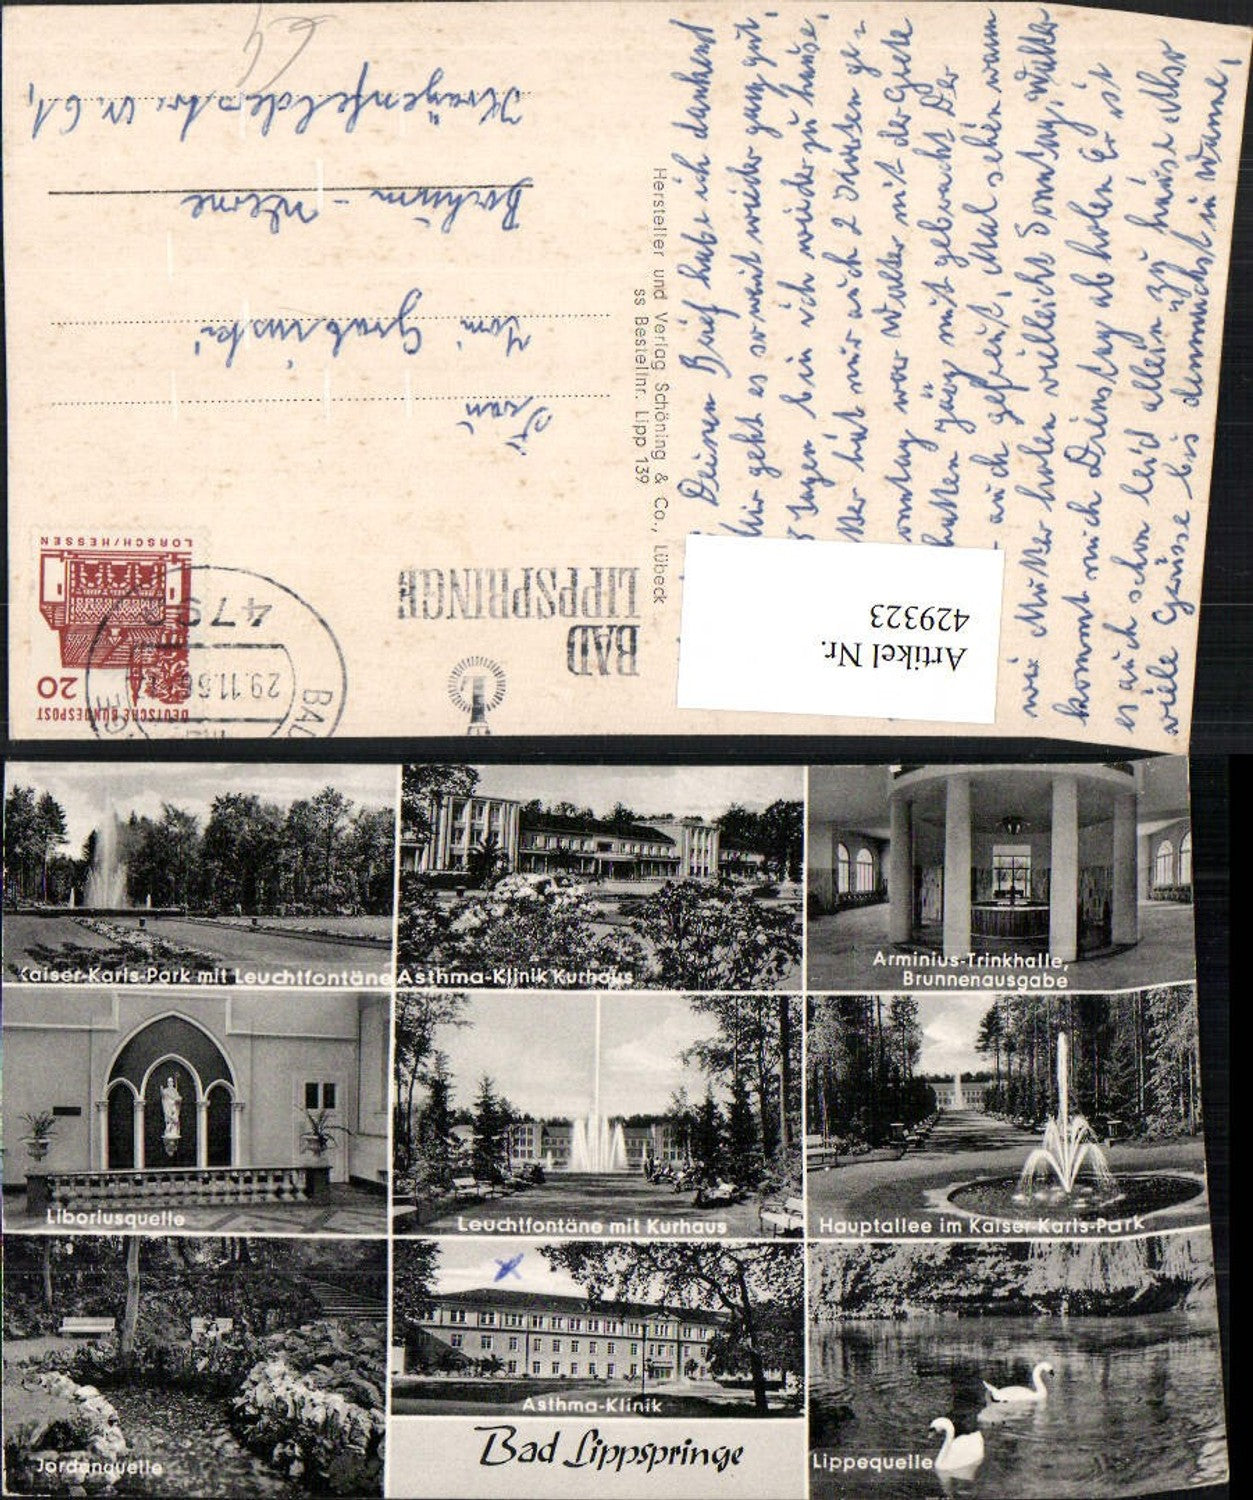 64
Frau
Toni Grabinski
Bochum - Werne
Krayenfelderstr. Nr. 61,
DEUTSCHE BUNDESPOST
20
LORSCH/HESSEN
479
29.11.66
BAD
BAD
LIPPSPRINGE
Hersteller und Verlag Schöning & Co., Lübeck
ss Bestellnr. Lipp 139
Artikel Nr.
429323
Deinen Brief habe ich dankend
Mir geht es soweit wieder ganz gut,
8 Tagen bin ich wieder zu hause,
hat mir auch 2
war Walter mit der Grete
hatten mit gebracht Der
auch gefreut, Mal sehen wann
wir Mutter holen vielleicht Sonntag, Walter
kommt mich Dienstag ab holen Er ist
es auch schon leid allein zu hause Also
viele Grüsse bis demnächst in Werne,
Kaiser-Karls-Park mit Leuchtfontäne
Asthma-Klinik Kurhaus
Arminius-Trinkhalle,
Brunnenausgabe
Liboriusquelle
Leuchtfontäne mit Kurhaus
Hauptallee im Kaiser-Karls-Park
Jordanquelle
Asthma-Klinik
Bad Lippspringe
Lippequelle